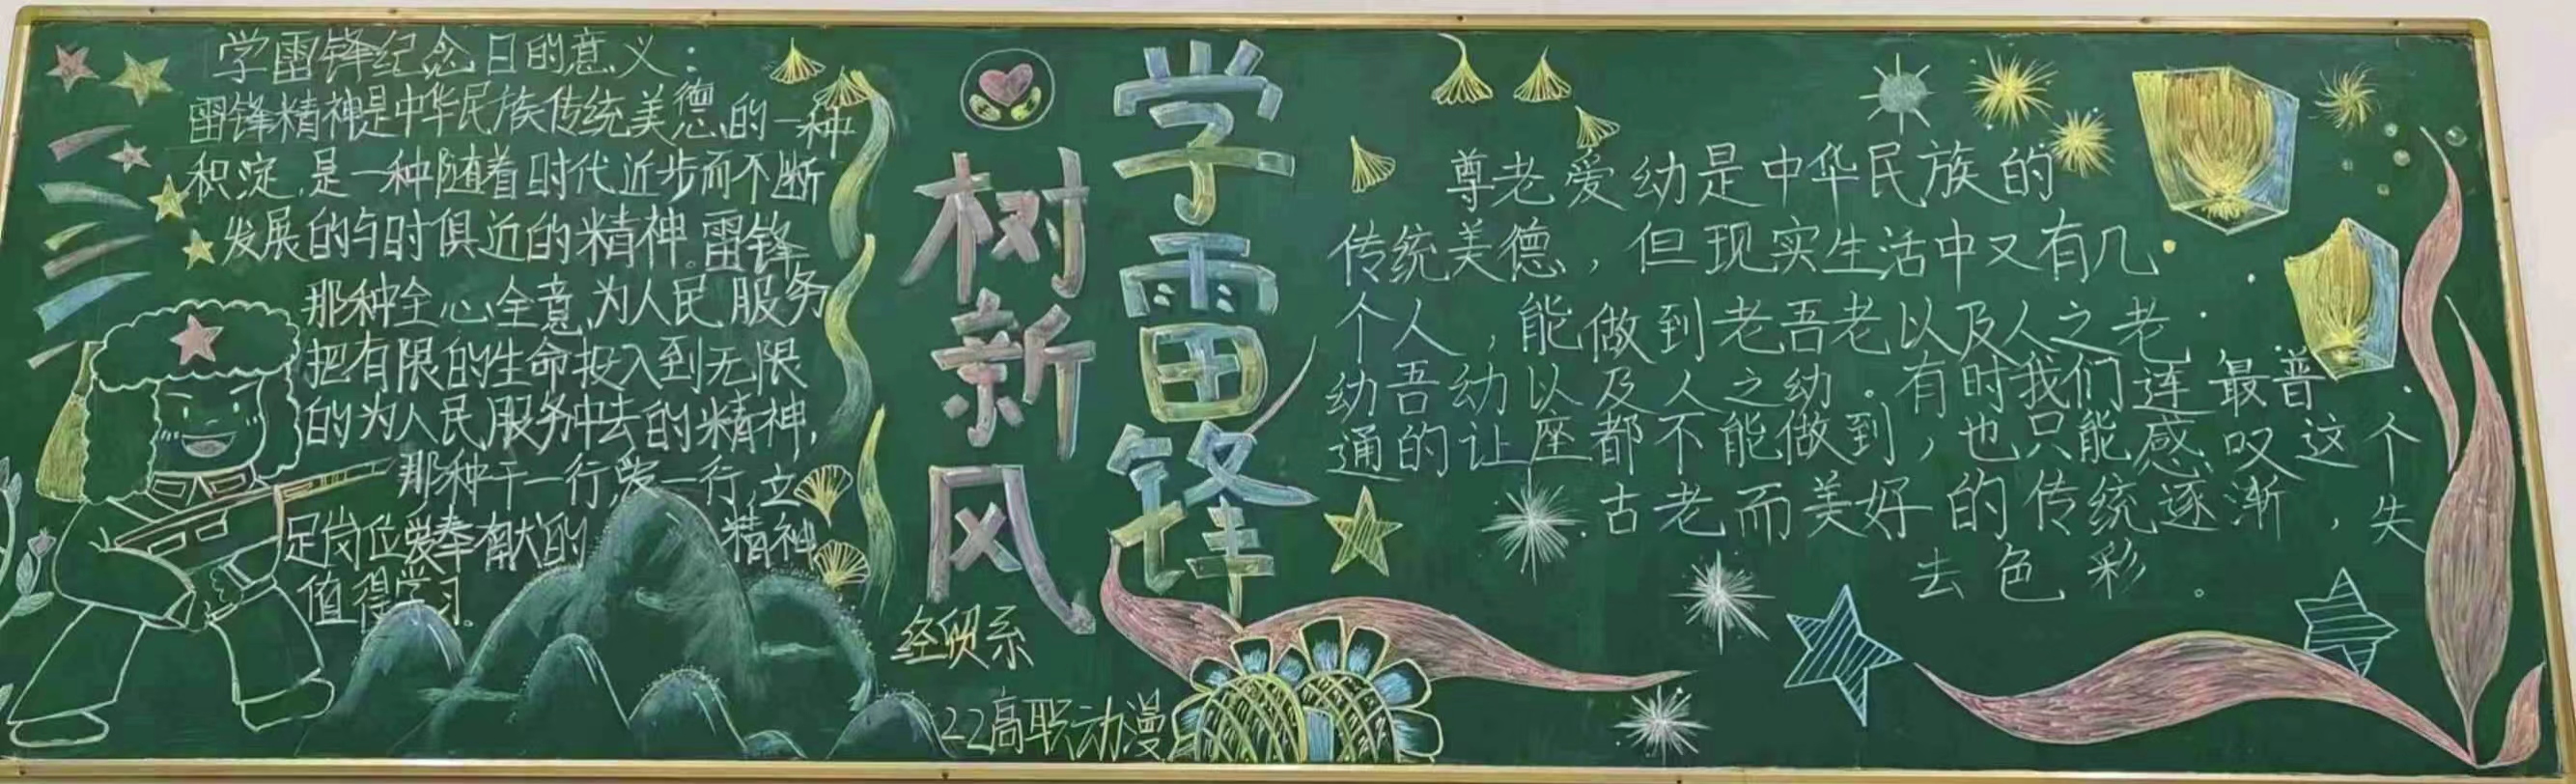 学雷锋纪念日的意义：
雷锋精神是中华民族传统美德的一种
积淀,是一种随着时代近步而不断
发展的与时俱近的精神。雷锋
那种全心全意为人民服务
把有限的生命投入到无限
的为人民服务中去的精神,
那种干一行,爱一行,立
足岗位爱奉献的精神
值得学习。
学雷锋
树新风
经贸系
22高职动漫
尊老爱幼是中华民族的
传统美德，但现实生活中又有几
个人，能做到老吾老以及人之老
幼吾幼以及人之幼。有时我们连最普
通的让座都不能做到，也只能感叹这个
古老而美好的传统逐渐，失
去色彩。